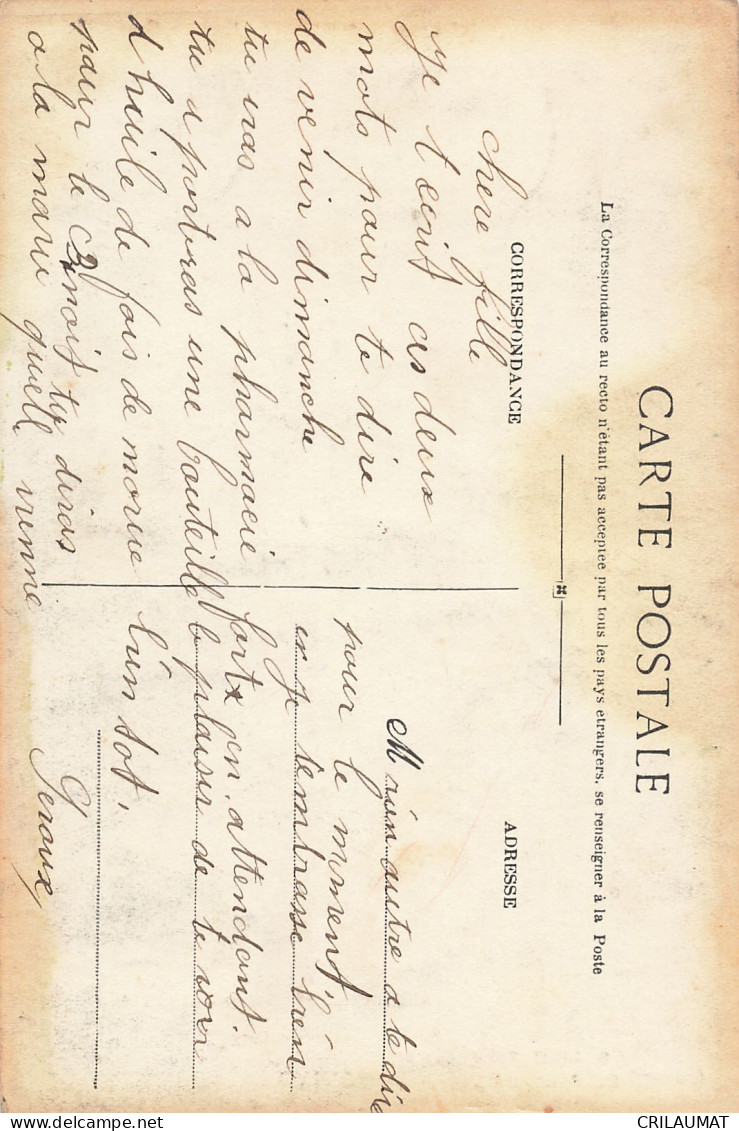 CARTE POSTALE
La Correspondance au recto n'étant pas acceptée par tous les pays étrangers, se renseigner à la Poste
CORRESPONDANCE
chere fille
Je t'ecrit ces deux
mots pour te dire
de venir dimanche
tu iras a la pharmacie
tu aportras une bouteille
d huile de fois de morue
pour le noit tu diras
a la marie quelle vienne
ADRESSE
Rien autre a te dire
pour le mment
er je t'embrasse bien
fort en attendant
le plaisir de te voir
bien tot.
Geroux
CRILAUMAT